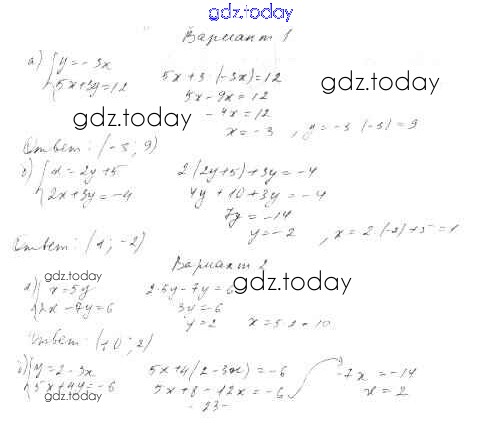 gdz.today
Вариант 1
а) { y = - 3x
5x+3y=12
5x+3·(-3x)=12
5x-9x=12
-4x=12
x=-3, y=-3·(-3)=9
gdz.today
gdz.today
Ответ: (-3; 9)
б) { x=2y+5
2x+3y=-4
2(2y+5)+3y=-4
4y+10+3y=-4
7y=-14
y=-2, x=2·(-2)+5=1
Ответ: (1; -2)
Вариант 2
gdz.today
а) { x=5y
2x-7y=6
2·5y-7y=6
3y=6
y=2 x=5·2=10
gdz.today
Ответ: (10; 2)
б) { y=2-3x
5x+4y=-6
5x+4(2-3x)=-6
5x+8-12x=-6
-7x=-14
x=2
gdz.today